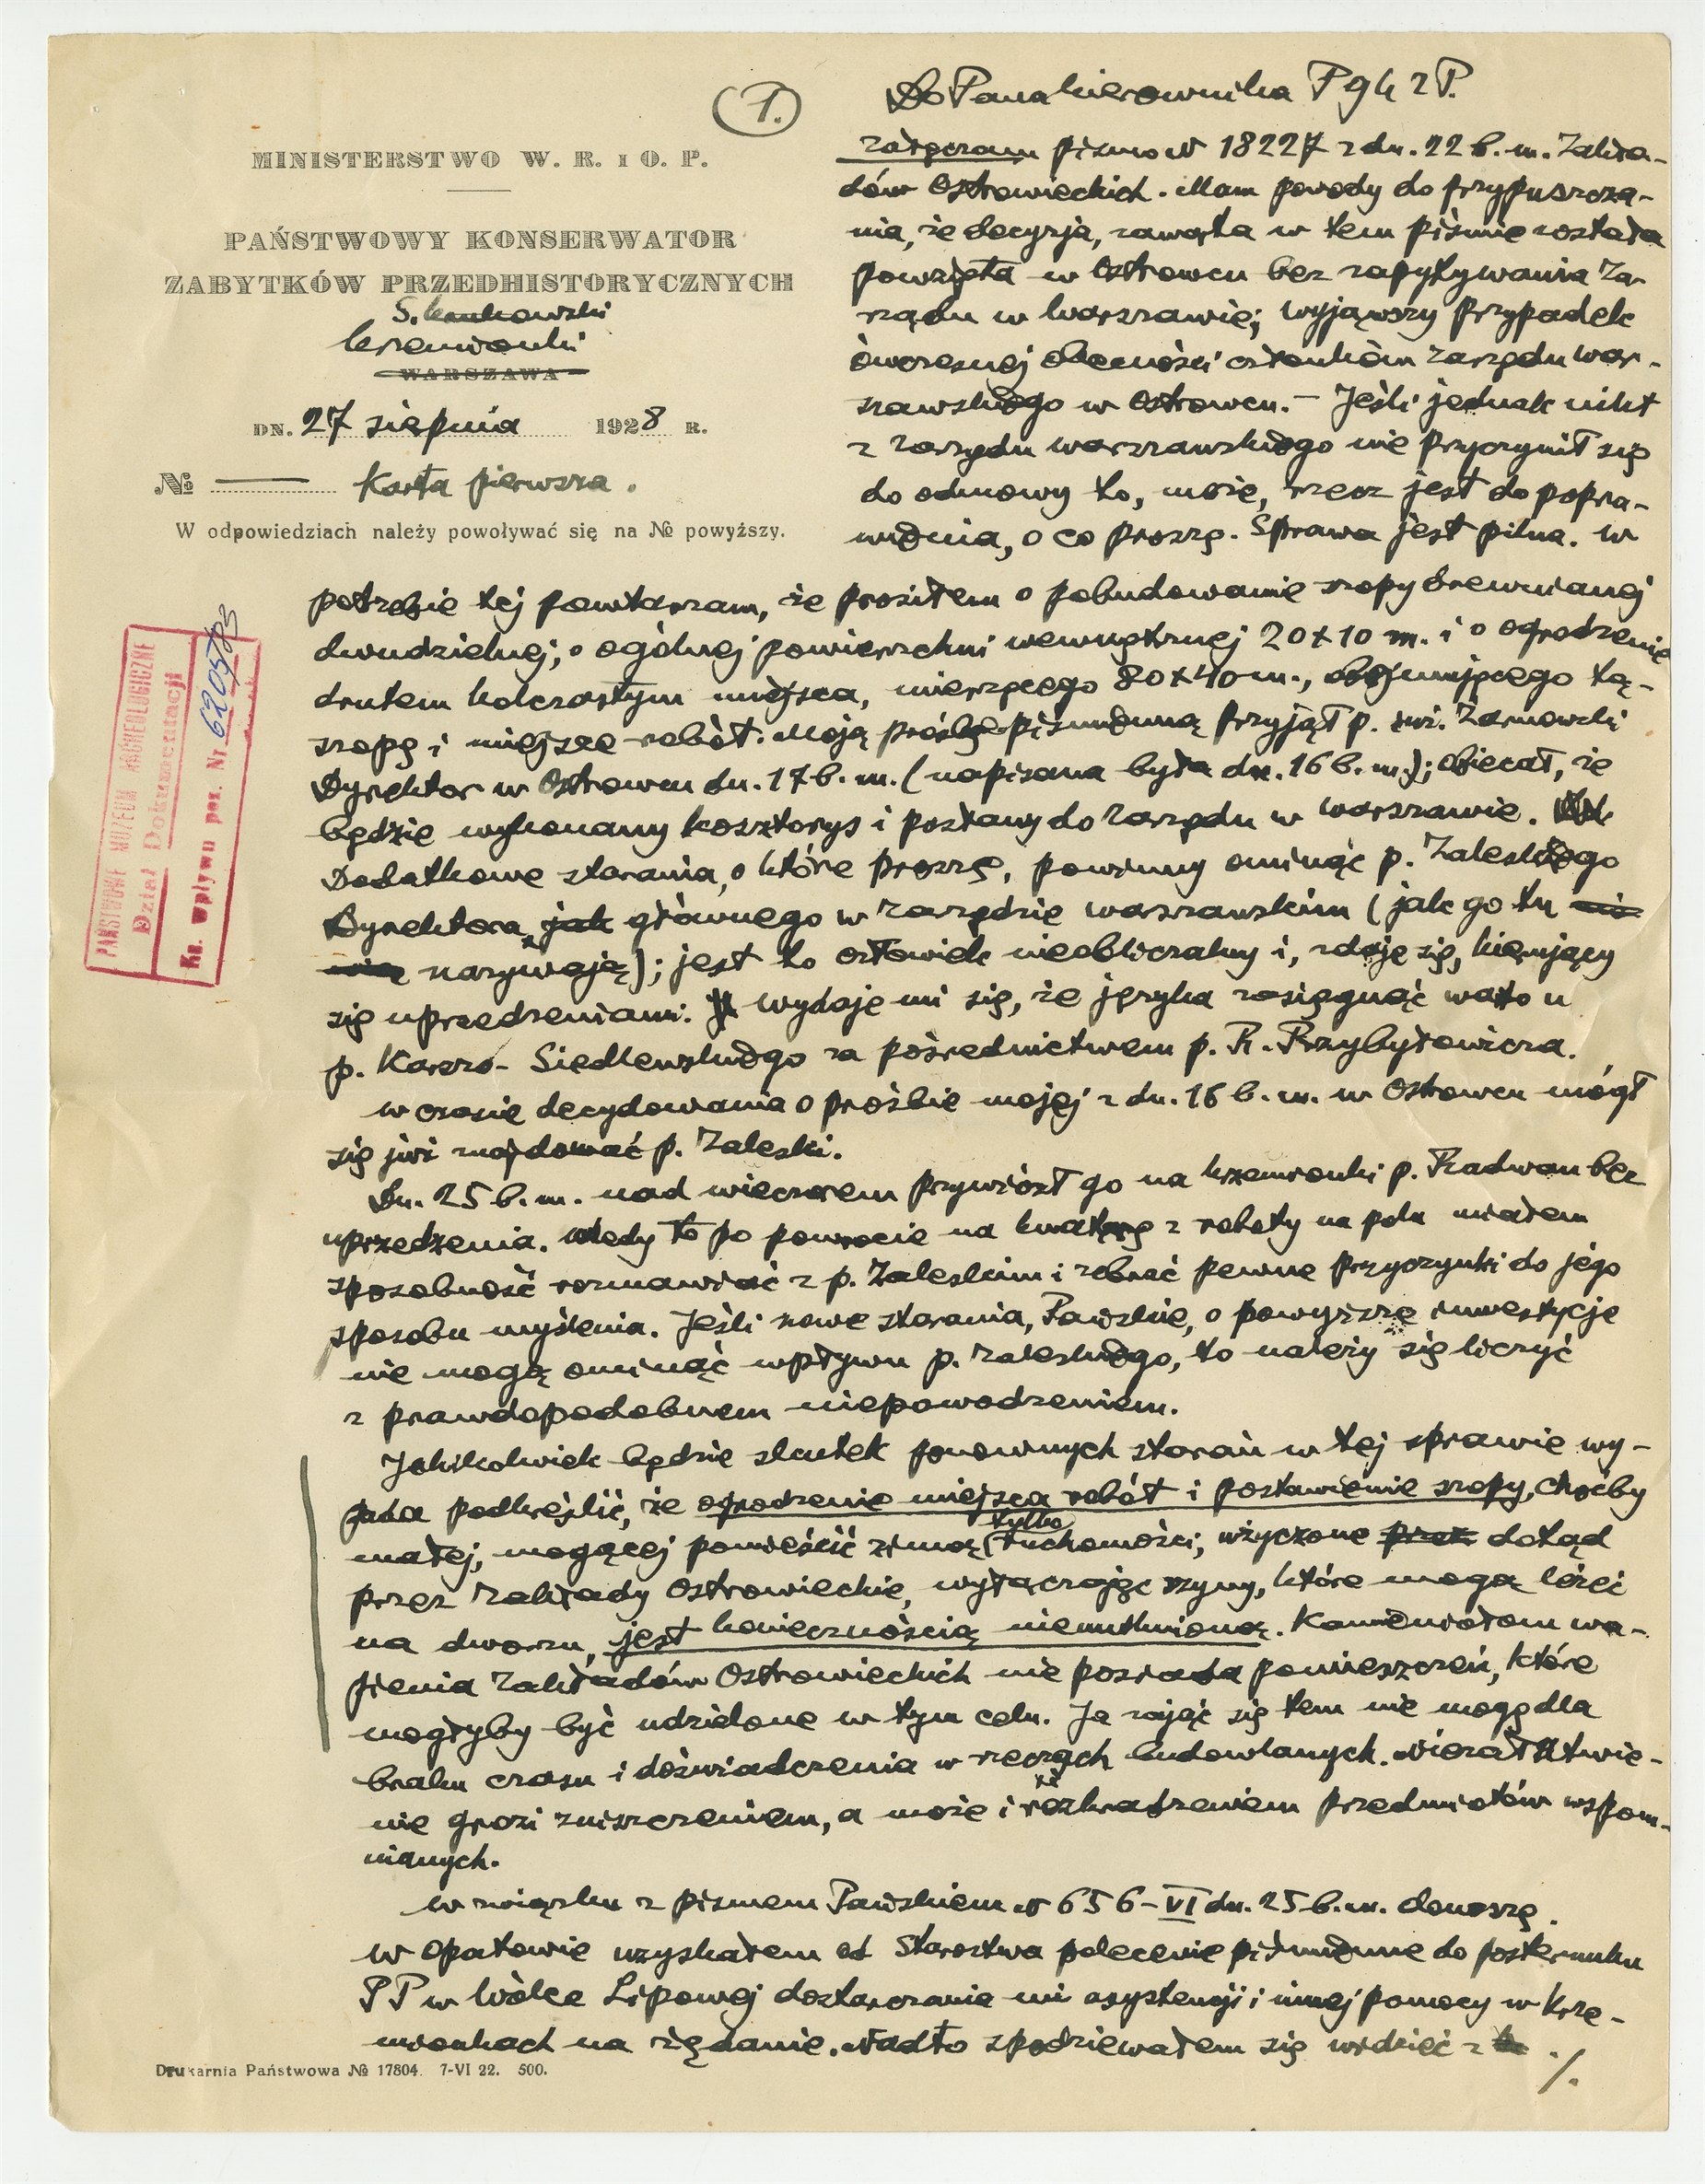 1.
MINISTERSTWO W. R. i O. P.
PAŃSTWOWY KONSERWATOR
ZABYTKÓW PRZEDHISTORYCZNYCH
S. Krukowski
Krzemionki
WARSZAWA
DN. 27 sierpnia 1928 R.
№ Karta pierwsza.
W odpowiedziach należy powoływać się na № powyższy.
Do Pana kierownika P g k z P.
załączam pismo N 18227 z dn. 22 b. m. Zakła-
dów Ostrowieckich. Mam powody do przypuszcza-
nia, że decyzja, zawarta w tem piśmie została
powzięta w Ostrowcu bez zapytywania Za-
rządu w Warszawie; wyjąwszy przypadek
ówczesnej obecności członków Zarządu war-
szawskiego w Ostrowcu. – Jeśli jednak nikt
z Zarządu warszawskiego nie przyczynił się
do odmowy to, może, rzecz jest do popra-
wienia, o co proszę. Sprawa jest pilna. W
potrzebie tej powtarzam, że prosiłem o pobudowanie szopy drewnianej
dwudzielnej, o ogólnej powierzchni wewnętrznej 20 x 10 m. i o ogrodzenie
drutem kolczastym miejsca, mierzącego 80 x 40 m., obejmującego tą-
szopę i miejsce robót. Moją prośbę piśmienną przyjął p. inż. Żarnowski
Dyrektor w Ostrowcu dn. 17 b. m. (napisana była dn. 16 b. m.); obiecał, że
będzie wykonany kosztorys i posłany do Zarządu w Warszawie.
Dodatkowe starania, o które proszę, powinny ominąć p. Zaleskiego
Dyrektora, jak głównego w Zarządzie warszawskim (jak go tu
nazywają); jest to człowiek nieobliczalny i, zdaje się, kierujący
się uprzedzeniami. Wydaje mi się, że języka zasięgnąć warto u
p. Karszo-Siedlewskiego za pośrednictwem p. R. Przybyłowicza.
W czasie decydowania o prośbie mojej z dn. 16 b. m. w Ostrowcu mógł
się już znajdować p. Zaleski.
Dn. 25 b. m. nad wieczorem przywiózł go na Krzemionki p. Radwan bez
uprzedzenia. Wtedy to po powrocie na kwaterę z roboty na polu miałem
sposobność rozmawiać z p. Zaleskim i zebrać pewne przyczynki do jego
sposobu myślenia. Jeśli nowe starania, Pańskie, o powyższe inwestycje
nie mogą ominąć wpływu p. Zaleskiego, to należy się liczyć
z prawdopodobnem niepowodzeniem.
Jakikolwiek będzie skutek ponownych starań w tej sprawie wy-
pada podkreślić, że ogrodzenie miejsca robót i postawienie szopy, choćby
małej, mogącej pomieścić zimą (tylko ruchomości, użyczone przez dotąd
przez Zakłady Ostrowieckie, wyłączając szyny, które mogą leżeć
na dworzu, jest koniecznością nieuniknioną. Kamieniołom wa-
pienia Zakładów Ostrowieckich nie posiada pomieszczeń, które
mogłyby być udzielone w tym celu. Ja zająć się tem nie mogę dla
braku czasu i doświadczenia w rzeczach budowlanych. Niezałatwie-
nie grozi zniszczeniem, a może i rozkradzeniem przedmiotów wspom-
nianych.
W związku z pismem Pańskiem N 656-VI dn. 25 b. m. donoszę.
W Opatowie uzyskałem od Starostwa polecenie piśmienne do posterunku
P P w Wólce Lipowej dostarczania mi asystencji i innej pomocy w Krze-
mionkach na żądanie. Nadto spodziewałem się widzieć z
./.
PAŃSTWOWE MUZEUM ARCHEOLOGICZNE
Dział Dokumentacji
Ks. Wpływu poz. Nr
Drukarnia Państwowa № 17804. 7-VI 22. 500.